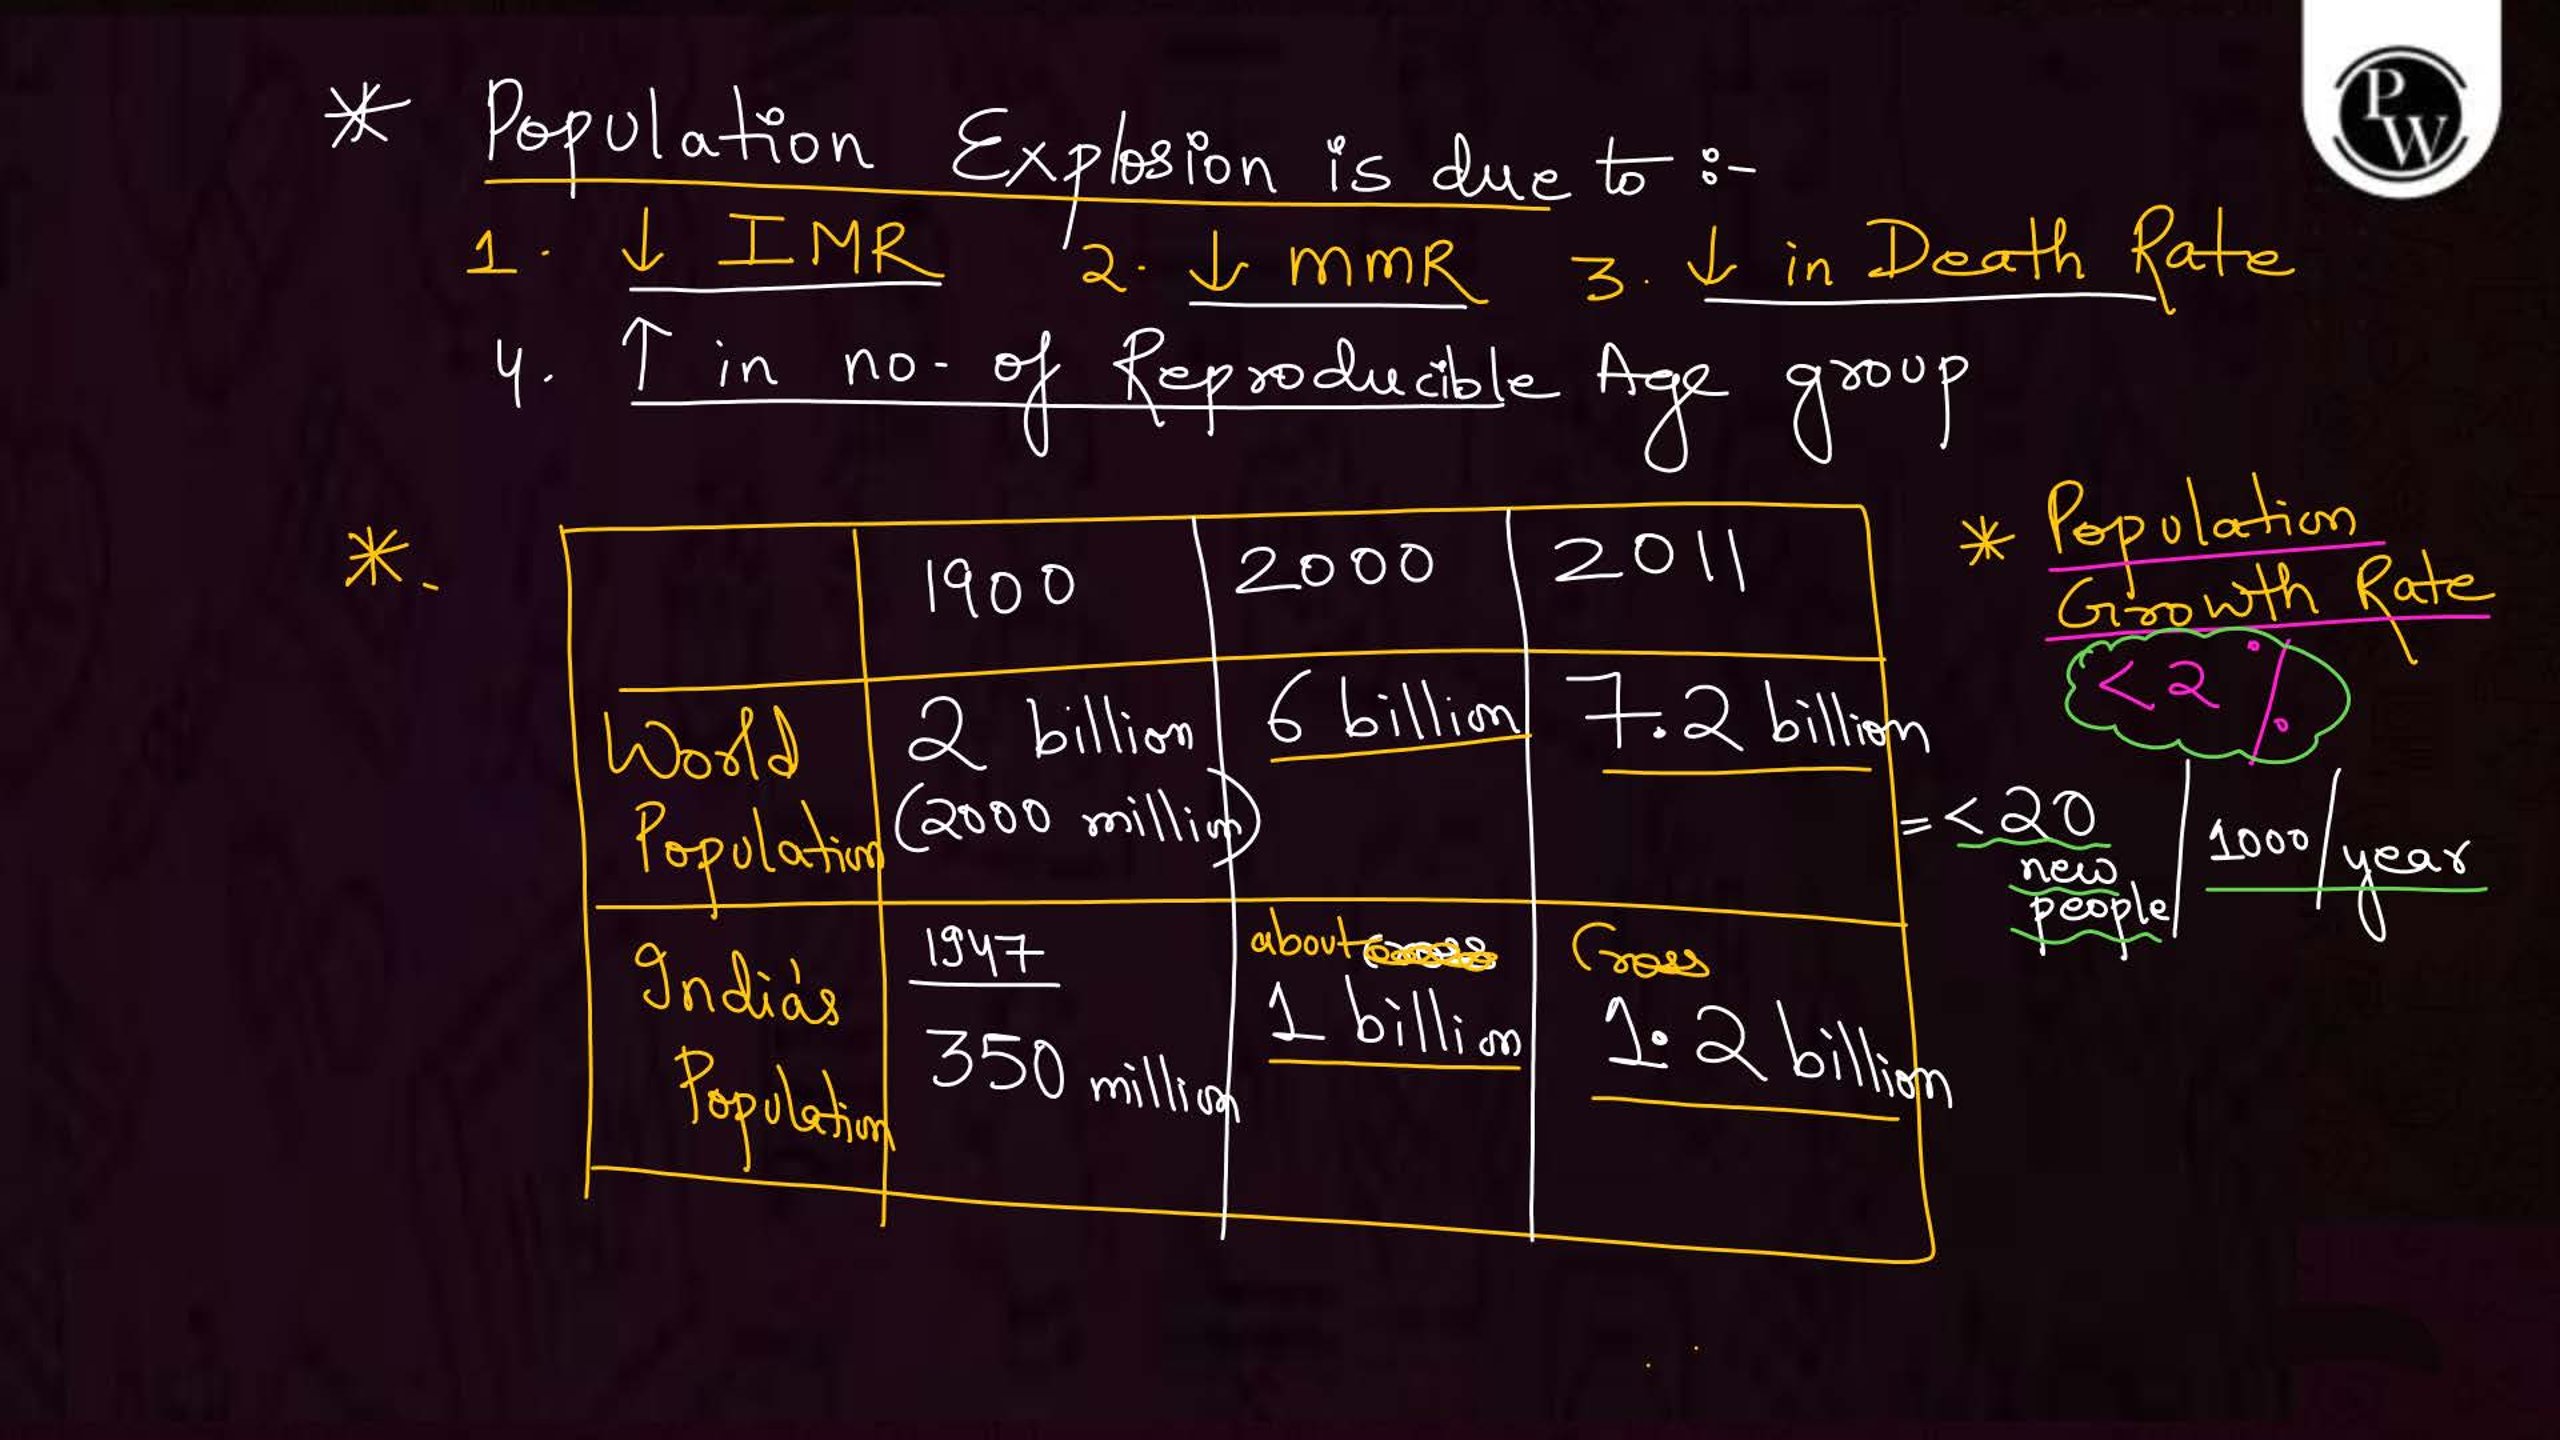 * Population Explosion is due to :-
1. ↓ IMR 2. ↓ mmR 3. ↓ in Death Rate
4. ↑ in no. of Reproducible Age group
*.
1900 2000 2011
World Population
2 billion (2000 million)
6 billion
7.2 billion
India's Population
1947
350 million
about
1 billion
Cross
1.2 billion
* Population
Growth Rate
<2%
= <20 new people / 1000 / year
PW